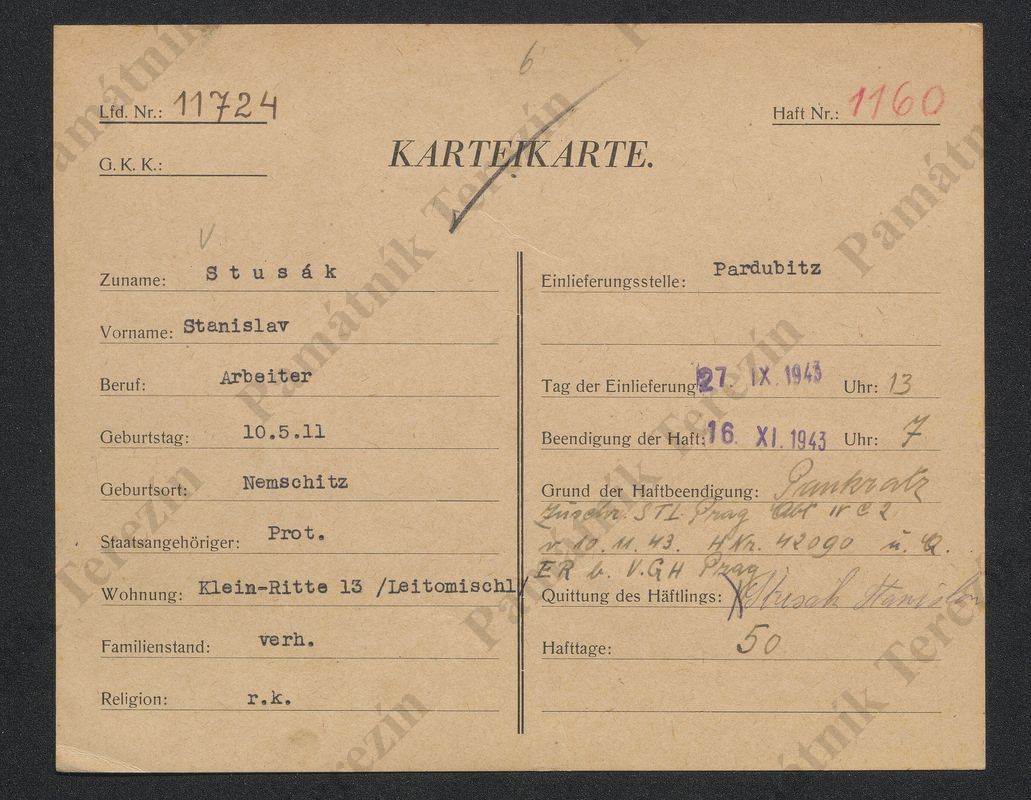 6
Lfd. Nr.: 11724
Haft Nr.: 1160
G. K. K.:
KARTEIKARTE.
Zuname: Stusák
Vorname: Stanislav
Beruf: Arbeiter
Geburtstag: 10.5.11
Geburtsort: Nemschitz
Staatsangehöriger: Prot.
Wohnung: Klein-Ritte 13 /Leitomischl/
Familienstand: verh.
Religion: r.k.
Einlieferungsstelle: Pardubitz
Tag der Einlieferung: 27. IX. 1943 Uhr: 13
Beendigung der Haft: 16. XI. 1943 Uhr: 7
Grund der Haftbeendigung: Pankratz
Zuschr. STL. Prag Abt IV C 2
v. 10. 11. 43. H Nr. 42090 u. Q.
ER b. V.GH Prag
Quittung des Häftlings: Stusák Stanislav
Hafttage: 50
Památník Terezín